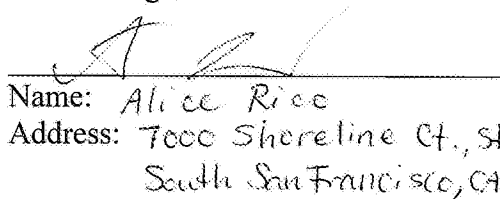 Name: Alice Rico
Address: 7000 Shoreline Ct.,
South San Francisco, CA